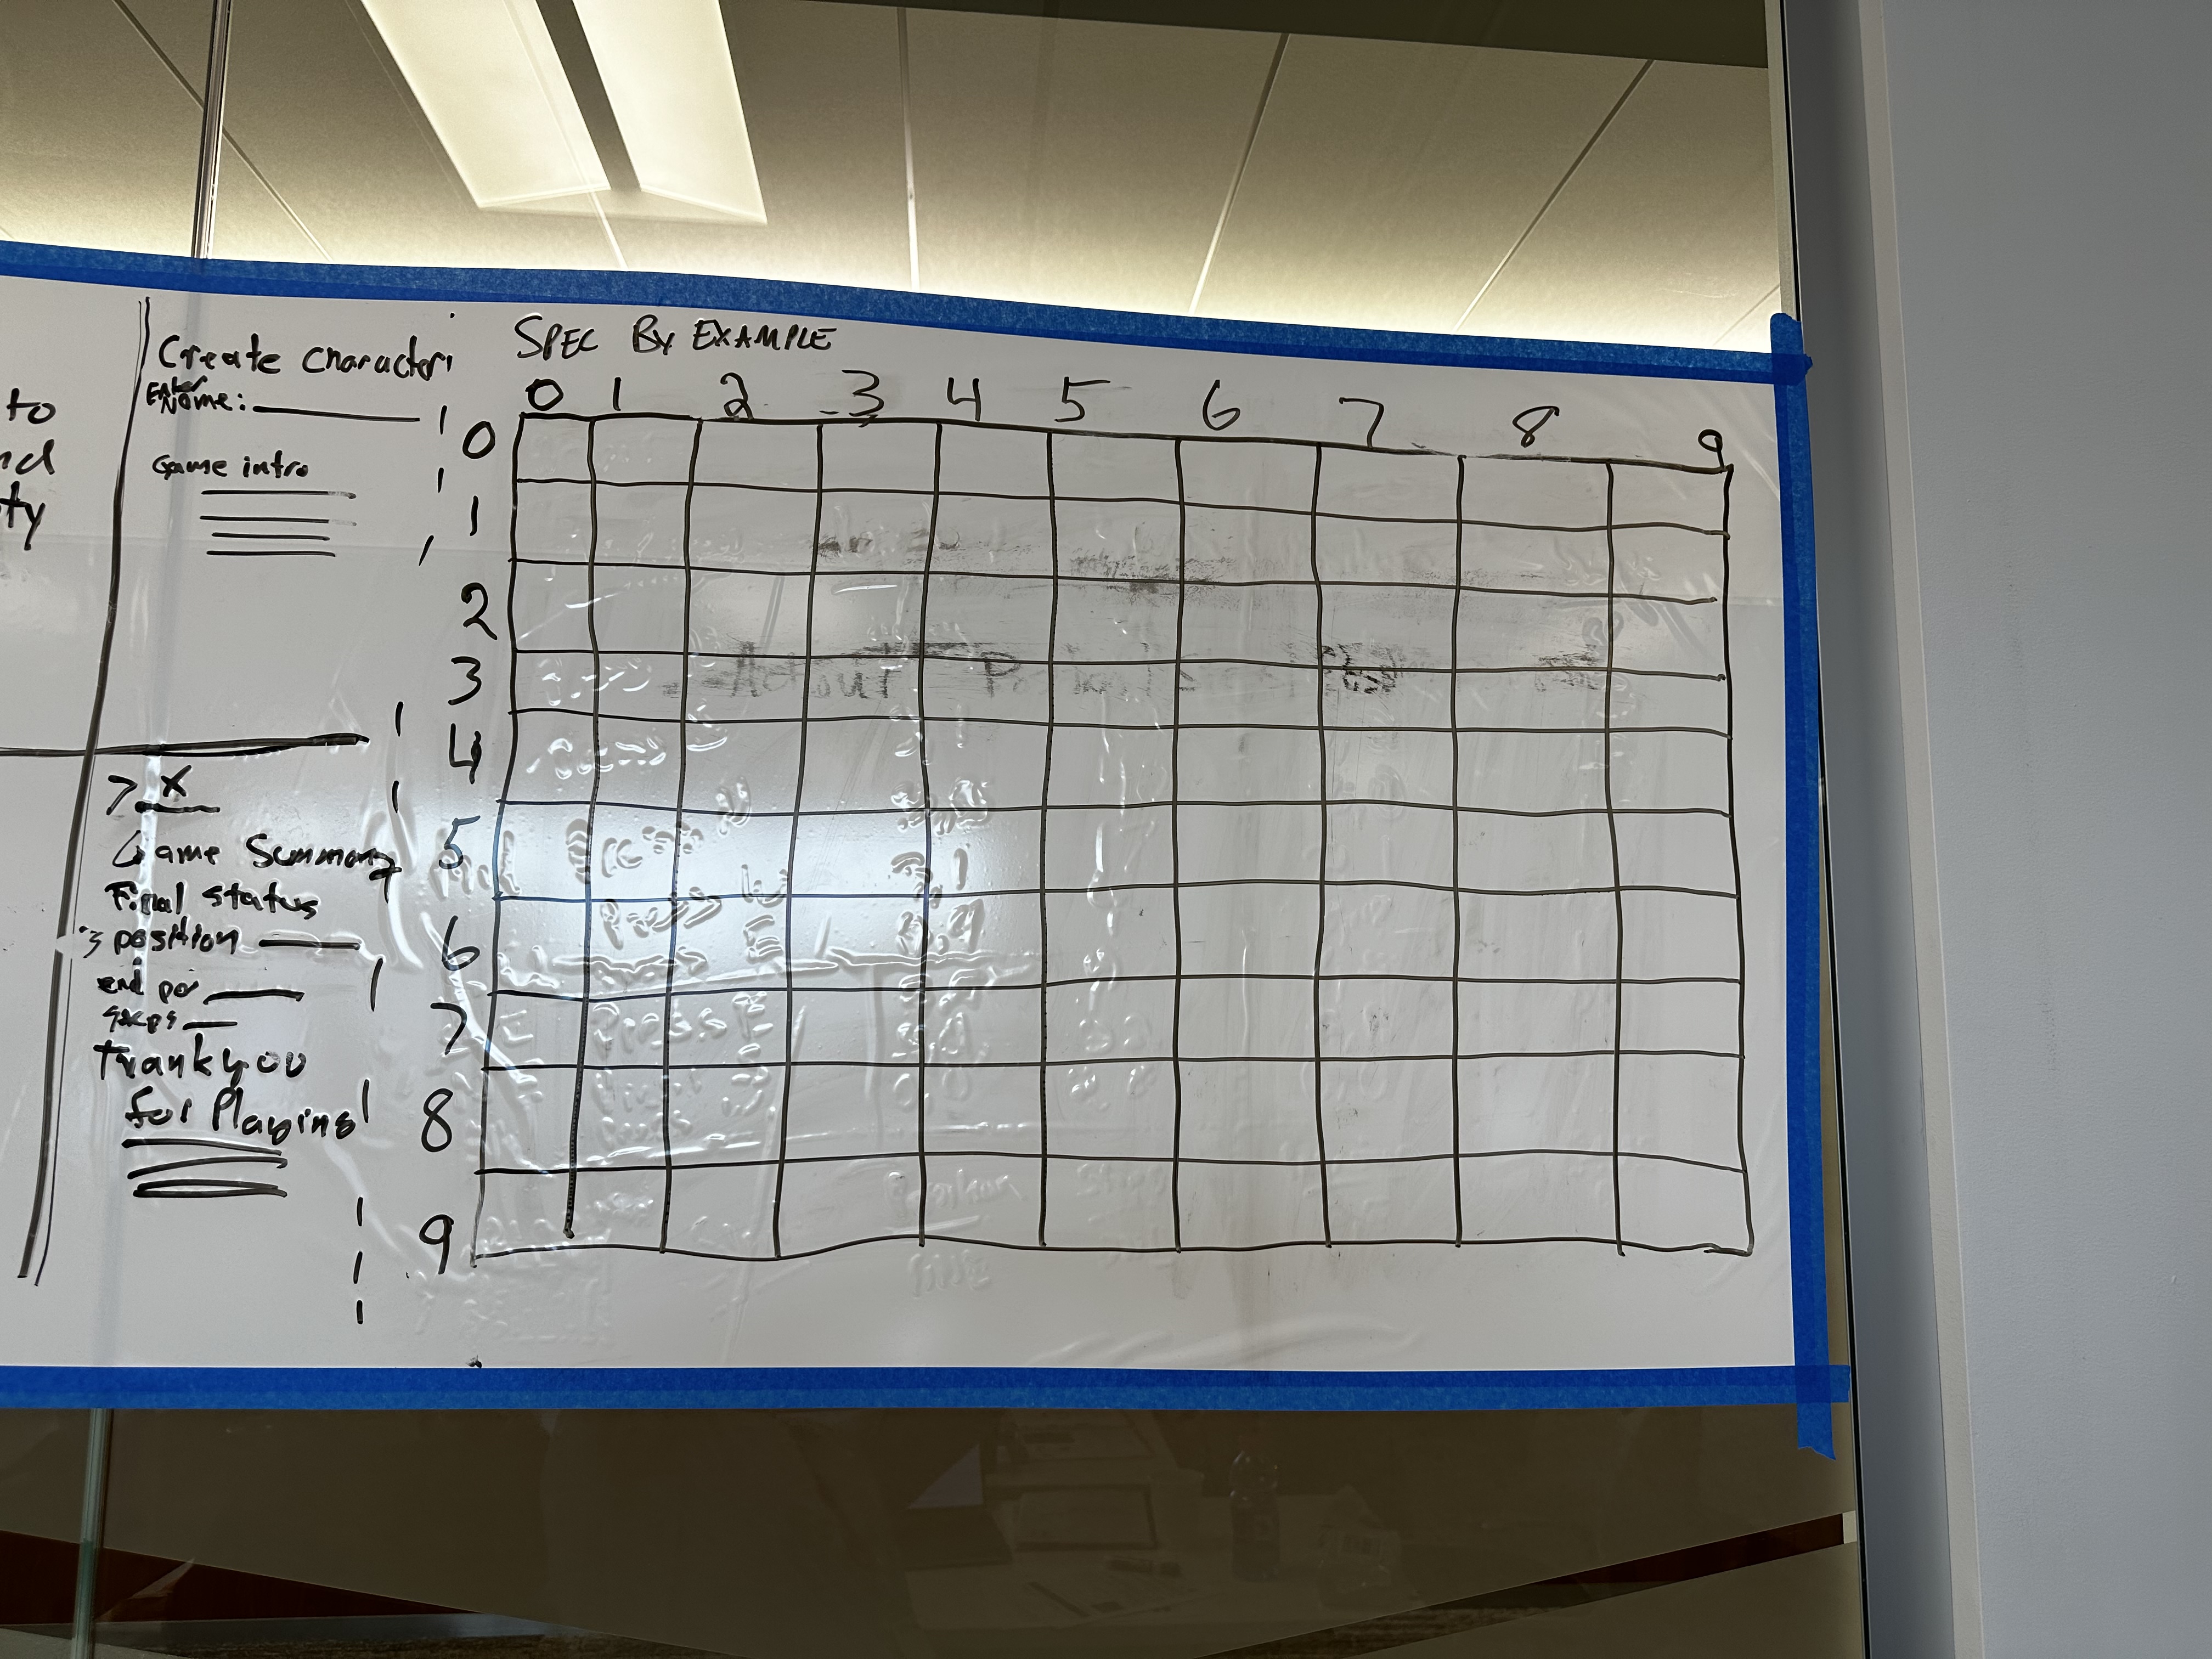 to
nd
ty
Create character
Enter
Name:
Game intro
> X
Game Summary
Final status
position
end pos
steps
Thank you
for Playing!
SPEC By EXAMPLE
0 1 2 3 4 5 6 7 8 9
0
1
2
3
4
5
6
7
8
9